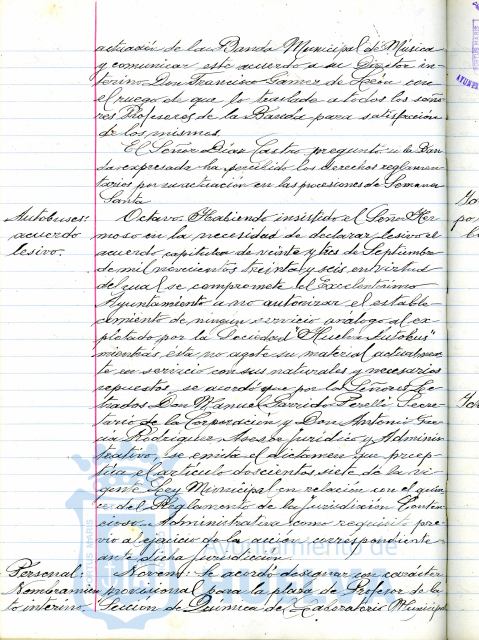 actuación de la Banda Municipal de Música
y comunicar este acuerdo a su Director in-
terino Don Francisco Gámez de León con
el ruego de que lo traslade a todos los seño-
res Profesores de la Banda para satisfacción
de los mismos.
El Señor Díaz Castro preguntó si la Ban-
da expresada ha percibido los derechos reglamen-
tarios por su actuación en las procesiones de Semana
Santa
Autobuses:
acuerdo
lesivo.
Octavo: Habiendo insistido el Señor Her-
moso en la necesidad de declarar lesivo el
acuerdo capitular de veinte y tres de Septiembre
de mil novecientos treinta y seis en virtud
del cual se compromete el Excelentísimo
Ayuntamiento a no autorizar el estable-
cimiento de ningún servicio análogo al ex-
plotado por la Sociedad "Huelva Autobus"
mientras ésta no agote su material actualmen-
te en servicio con sus naturales y necesarios
repuestos, se acordó que por los Señores Le-
trados Don Manuel Garrido Perelló Secre-
tario de la Corporación y Don Antonio Gar-
cía Rodríguez Asesor Jurídico y Adminis-
trativo, se emita el dictamen que precep-
túa el artículo doscientos siete de la vi-
gente Ley Municipal en relación con el quin-
ce del Reglamento de la Jurisdicción Conten-
cioso-Administrativa como requisito pre-
vio al ejercicio de la acción correspondiente
ante dicha jurisdicción
Personal:
Nombramien-
to interino.
Noveno: Se acordó designar con carácter
provisional para la plaza de Profesor de la
Sección de Química de Laboratorio Municipal
Ayuntamiento de